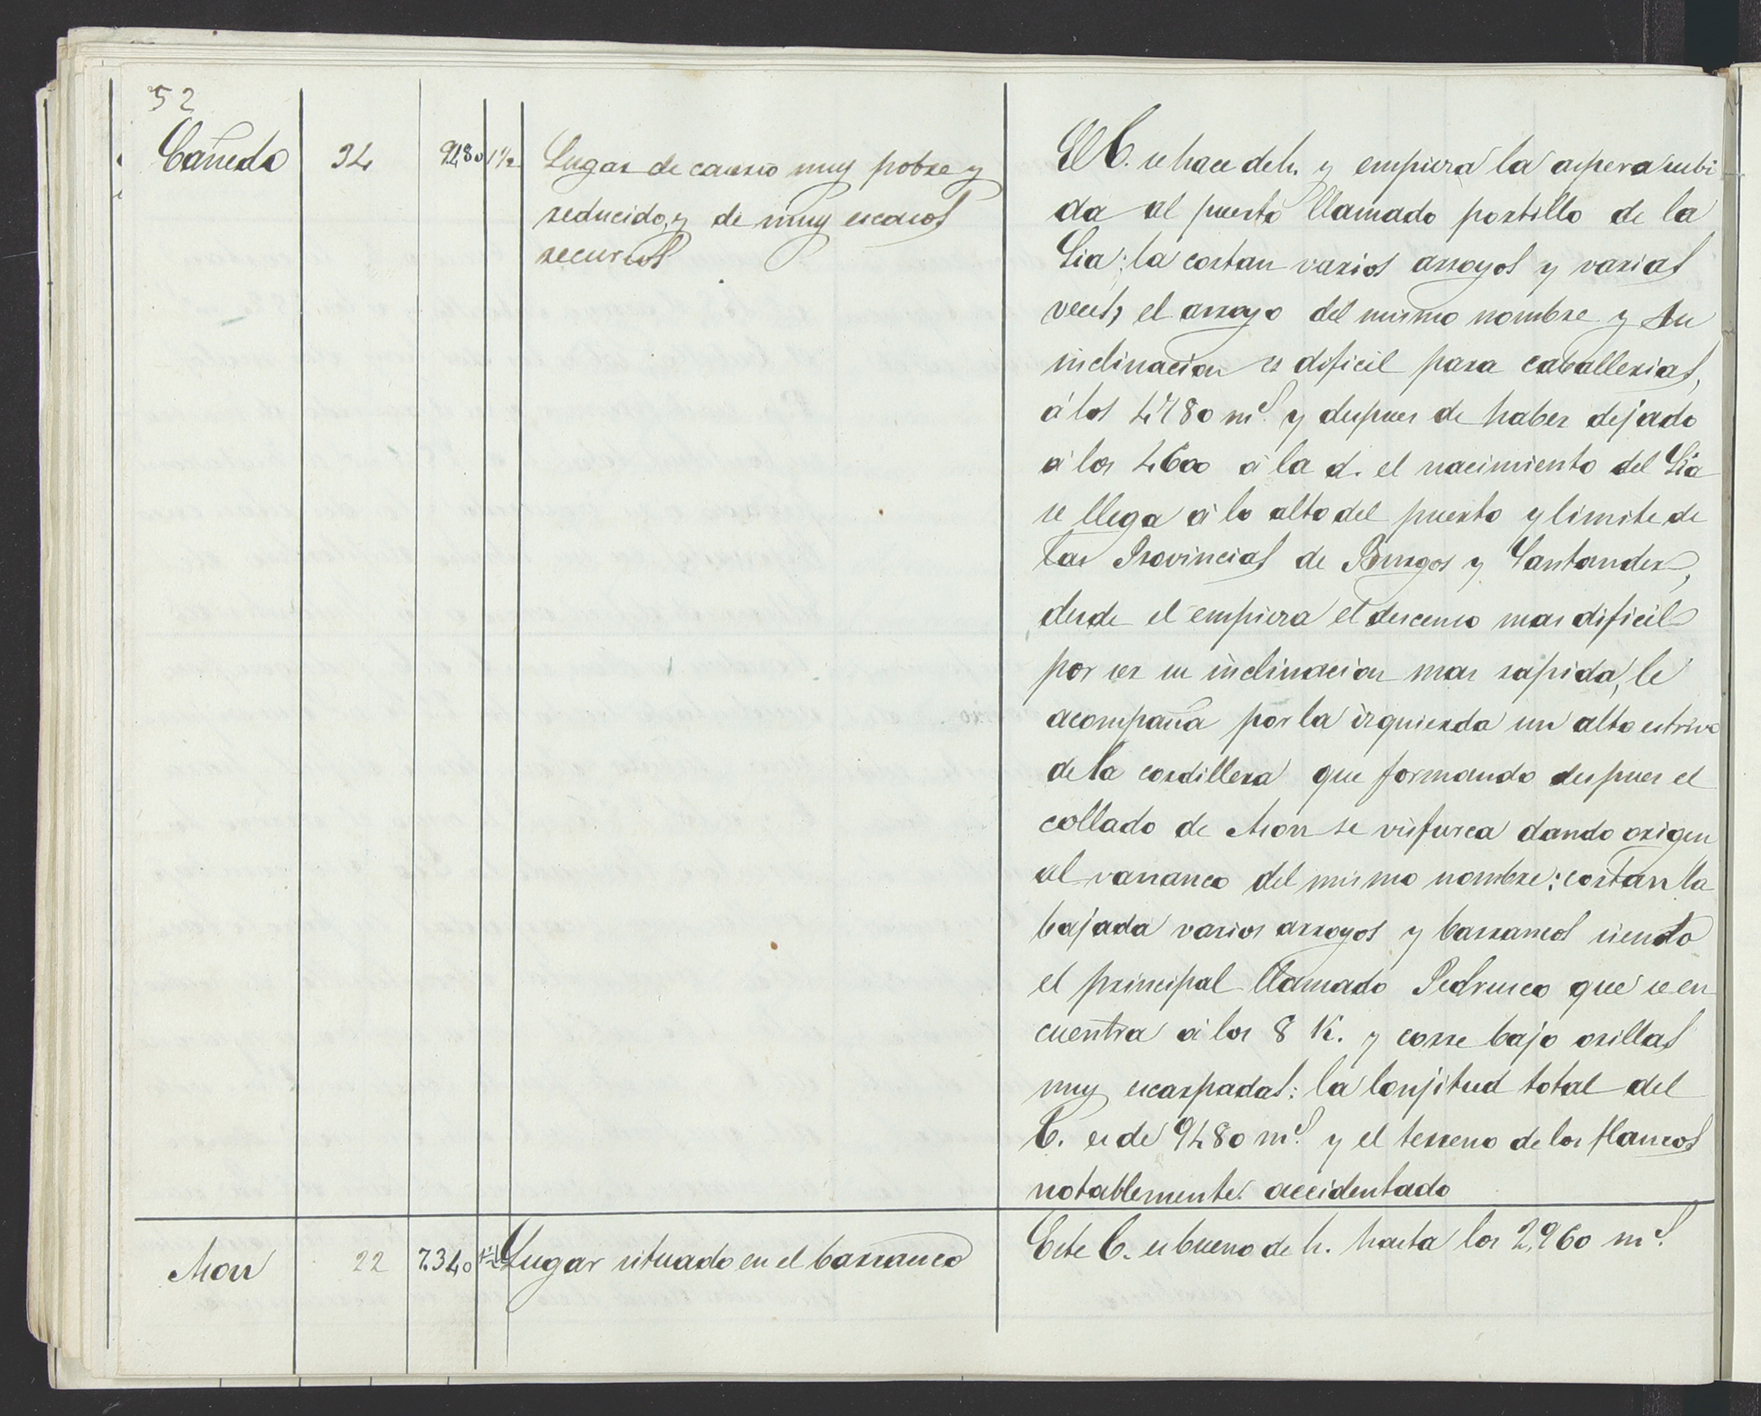 52
Cañedo 34 9480 1 1/2 Lugar de caserio muy pobre y
reducido, y de muy escasos
recursos
El C. se hace de h. y empieza la aspera subi
da al puerto llamado portillo de la
Sia: la cortan varios arroyos y varias
veces, el arroyo del mismo nombre y su
inclinacion es dificil para caballerias,
á los 4780 m.s y despues de haber dejado
á los 4600 á la d. el nacimiento del Sia
se llega á lo alto del puerto y limite de
las Provincias de Burgos y Santander,
desde el empieza el descenso mas dificil
por ser su inclinacion mas rapida, le
acompaña por la izquierda un alto estrivo
de la cordillera que formando despues el
collado de Mon se vifurca dando origen
al varranco del mismo nombre: cortan la
bajada varios arroyos y barrancos siendo
el principal llamado Pedrusco que se en
cuentra á los 8 K. y corre bajo orillas
muy escarpadas: la lonjitud total del
C. es de 9480 m.s y el terreno de los flancos
notablemente accidentado
Mon 22 7.340 Lugar situado en el barranco
Este C. es bueno de h. hasta los 2,960 m.s